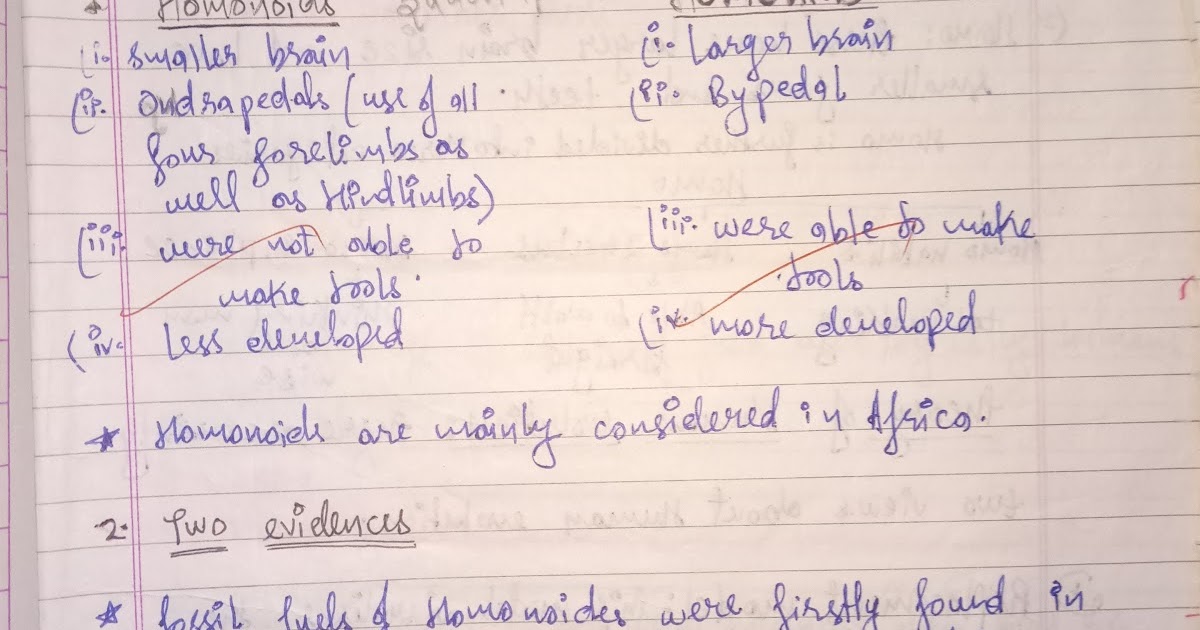 Homonoids
(i. smaller brain (i. Larger brain
(ii. Qudrapedals (use of all (ii. Bypedal
four forelimbs as
well as Hindlimbs)
(iii. were not able to (iii. were able to make
make tools. tools
(iv. Less developed (iv. more developed
* Homonoids are mainly considered in Africa.
2. Two evidences
* fossil fuels of Homonoides were firstly found in